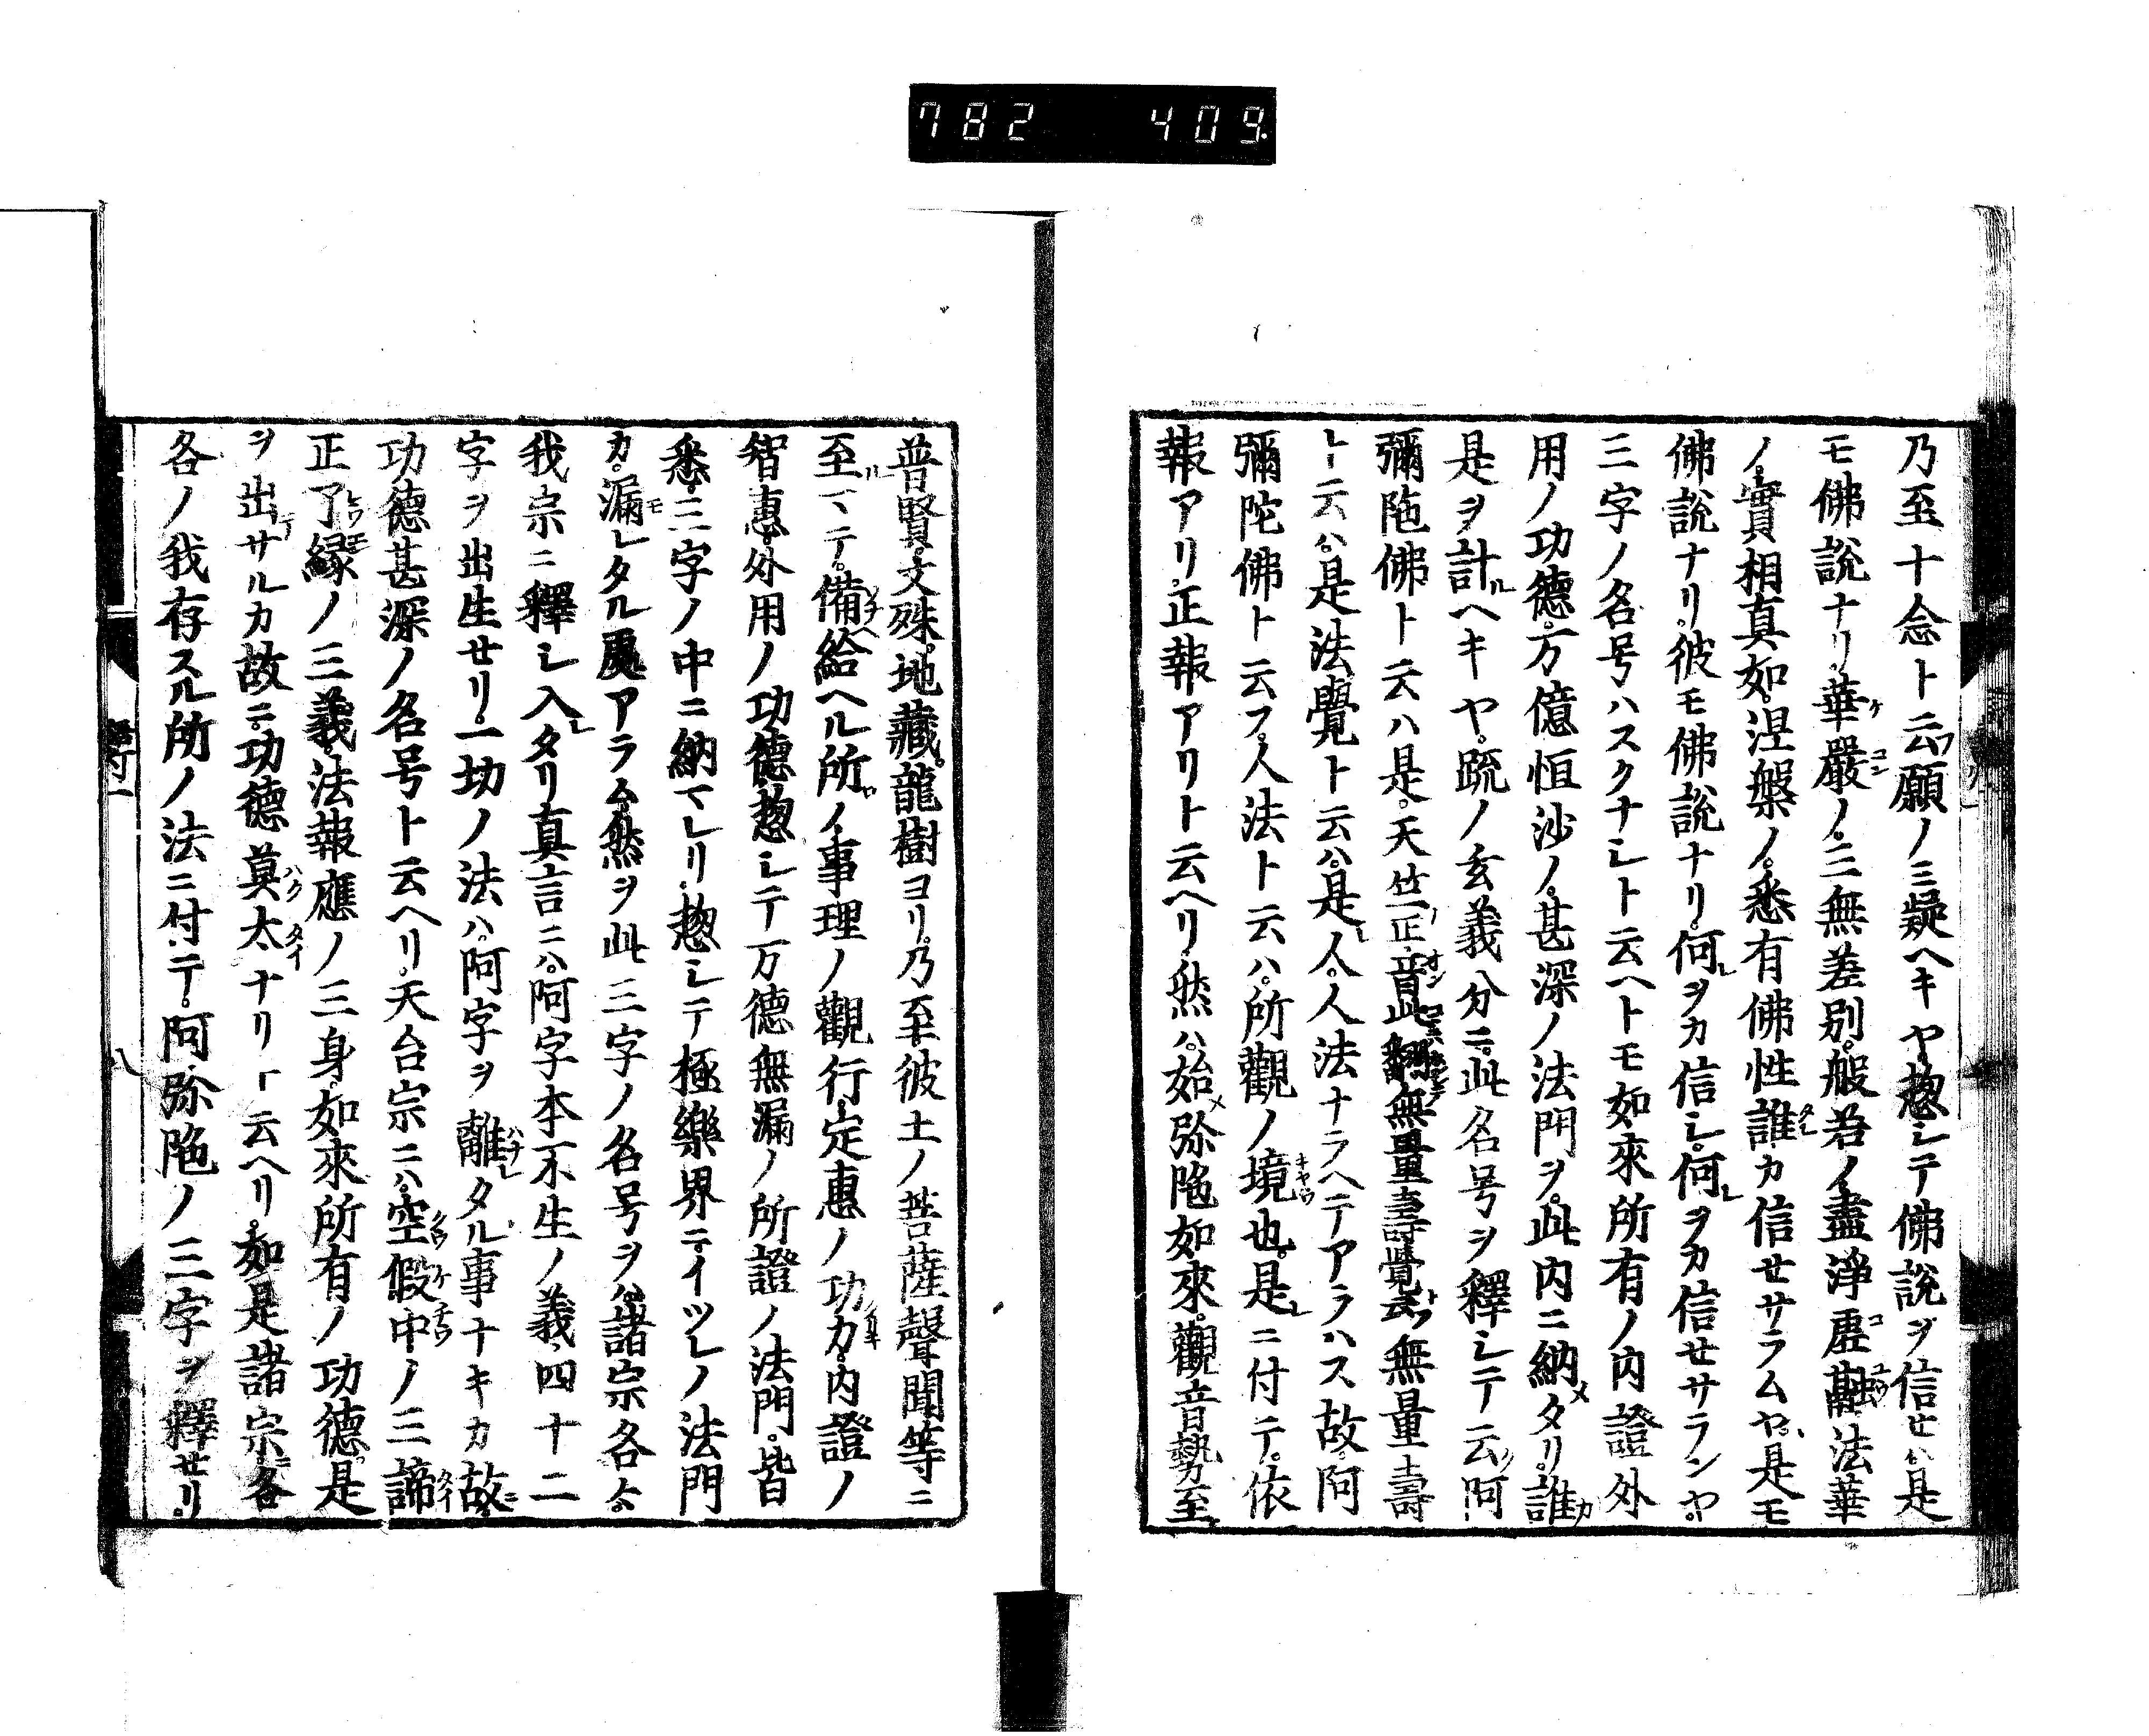 782 409
乃至十念ト云願ノミ疑ヘキヤ惣シテ佛說ヲ信セハ是
モ佛說ナリ華嚴ノ三無差別般若ノ盡淨虛融法華
ノ實相真如涅槃ノ悉有佛性誰カ信セサラムヤ是モ
佛說ナリ彼モ佛說ナリ何ヲカ信シ何ヲカ信セサランヤ
三字ノ名号ハスクナシト云ヘトモ如來所有ノ內證外
用ノ功德万億恒沙ノ甚深ノ法門ヲ此內ニ納タリ誰
是ヲ計ヘキヤ疏ノ玄義分ニ此名号ヲ釋シテ云阿
彌陁佛ト云ハ是天竺正音此翻無量壽覺云無量壽
ト云ハ是法覺ト云ハ是人人法ナラヘテアラハス故阿
彌陀佛ト云フ人法ト云ハ所觀ノ境也是ニ付テ依
報アリ正報アリト云ヘリ然ハ始弥陁如來觀音勢至
普賢文殊地藏龍樹ヨリ乃至彼土ノ菩薩聲聞等ニ
至マテ備給ヘル所ノ事理ノ觀行定惠ノ功力內證ノ
智惠外用ノ功德惣シテ万德無漏ノ所證ノ法門皆
悉三字ノ中ニ納マレリ惣シテ極樂界ニイツレノ法門
カ漏レタル處アラム然ヲ此三字ノ名号ヲハ諸宗各
我宗ニ釋シ入タリ真言ニハ阿字本不生ノ義四十二
字ヲ出生セリ一切ノ法ハ阿字ヲ離タル事ナキカ故
功德甚深ノ名号ト云ヘリ天台宗ニハ空假中ノ三諦
正了緣ノ三義法報應ノ三身如來所有ノ功德是
ヲ出サルカ故ニ功德莫太ナリト云ヘリ如是諸宗各
各ノ我存スル所ノ法ニ付テ阿弥陁ノ三字ヲ釋セリ
八